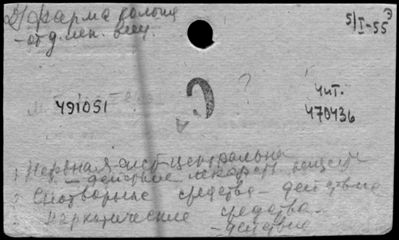 Д/ фарма
5/I-55
- отд.лек. вещ.
?
чит.
491051
470436
1 Нервная сист. центральна
- действие лекарств. веществ
2 Снотворные средства - действие
3 Наркотические средства -
- действие